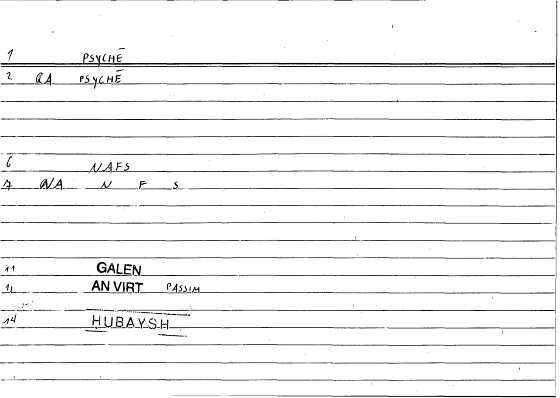 1 PSYCHĒ
2 QA PSYCHĒ
6 NAFS
7 NA N F S
11 GALEN
12 AN VIRT PASSIM
14 HUBAYSH